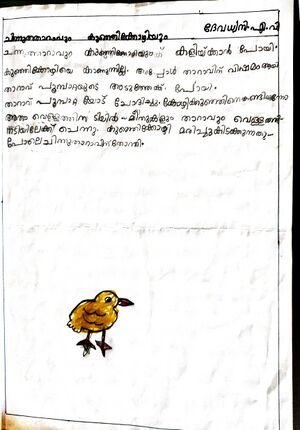 ദേവധ്വനി എ വി
ചിന്നുത്താറാവും കുഞ്ഞിക്കോഴിയും
ചിന്നുത്താറാവും കുഞ്ഞിക്കോഴിയും കളിയ്ക്കാൻ പോയി.
കുഞ്ഞിക്കോഴിയെ കാണുന്നില്ല. അപ്പോൾ താറാവിന് വിഷമം ആയി
താറാവ് പൂമ്പാറ്റയുടെ അടുത്തേക്ക് പോയി.
താറാവ് പൂമ്പാറ്റയോട് ചോദിച്ചു. കോഴിക്കുഞ്ഞിനെ കണ്ടിരുന്നോ
വെള്ളത്തിനടിയിൽ മീനുകളും താറാവും
ചെന്നു. കുഞ്ഞിക്കോഴി മരിച്ചുകിടക്കുന്നതു
പോലെ ചിന്നുതാറാവിന് തോന്നി.